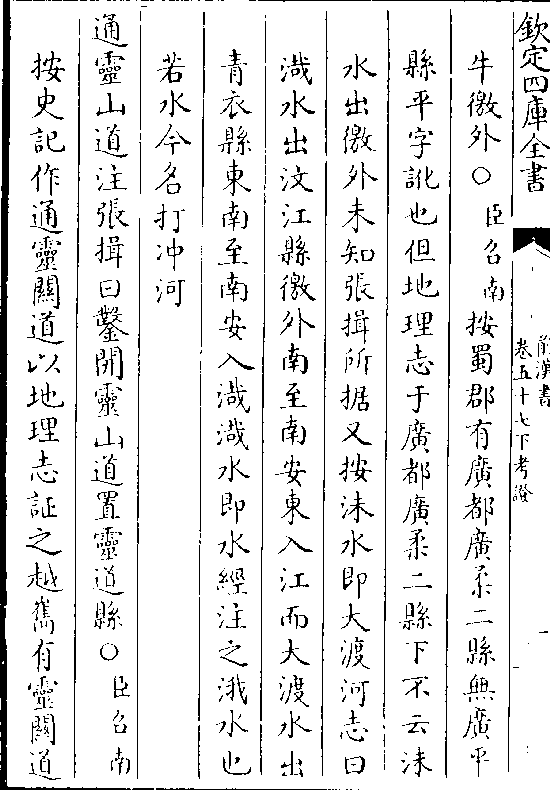 欽定四庫全書
前漢書
卷五十七下考證
牛徼外○臣召南按蜀郡有廣都廣柔二縣無廣平
縣平字訛也但地理志于廣都廣柔二縣下不云沬
水出徼外未知張揖所据又按沬水即大渡河志曰
渽水出汶江縣徼外南至南安東入江而大渡水出
青衣縣東南至南安入渽渽水即水經注之涐水也
若水今名打冲河
通靈山道注張揖曰鑿開靈山道置靈道縣○臣召南
按史記作通靈關道以地理志証之越嶲有靈關道